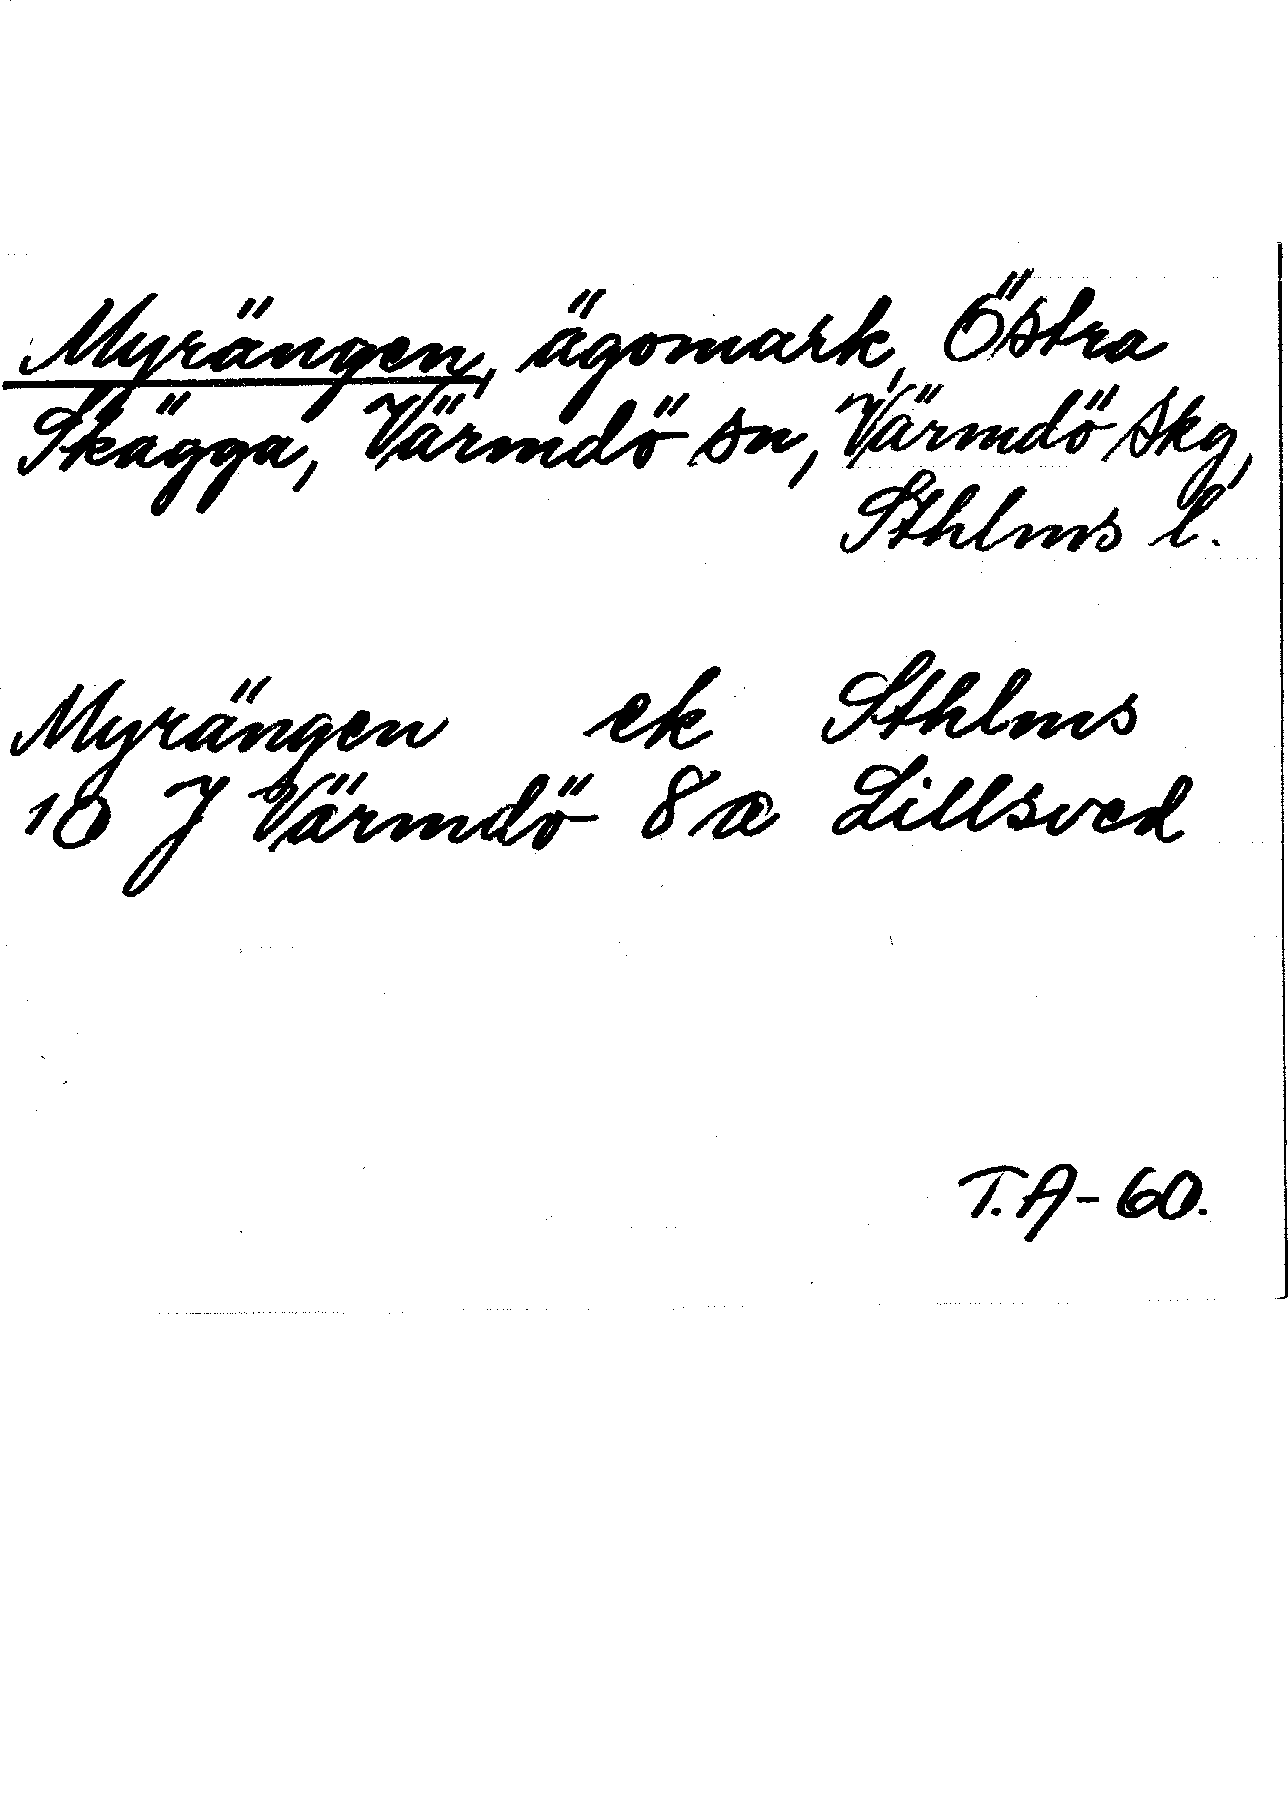 Myrängen, ägomark, Östra
Skägga, Värmdö sn, Värmdö skg,
Sthlms l.
Myrängen ek Sthlms
10 J Värmdö 8 a Lillsved
T.A-60.